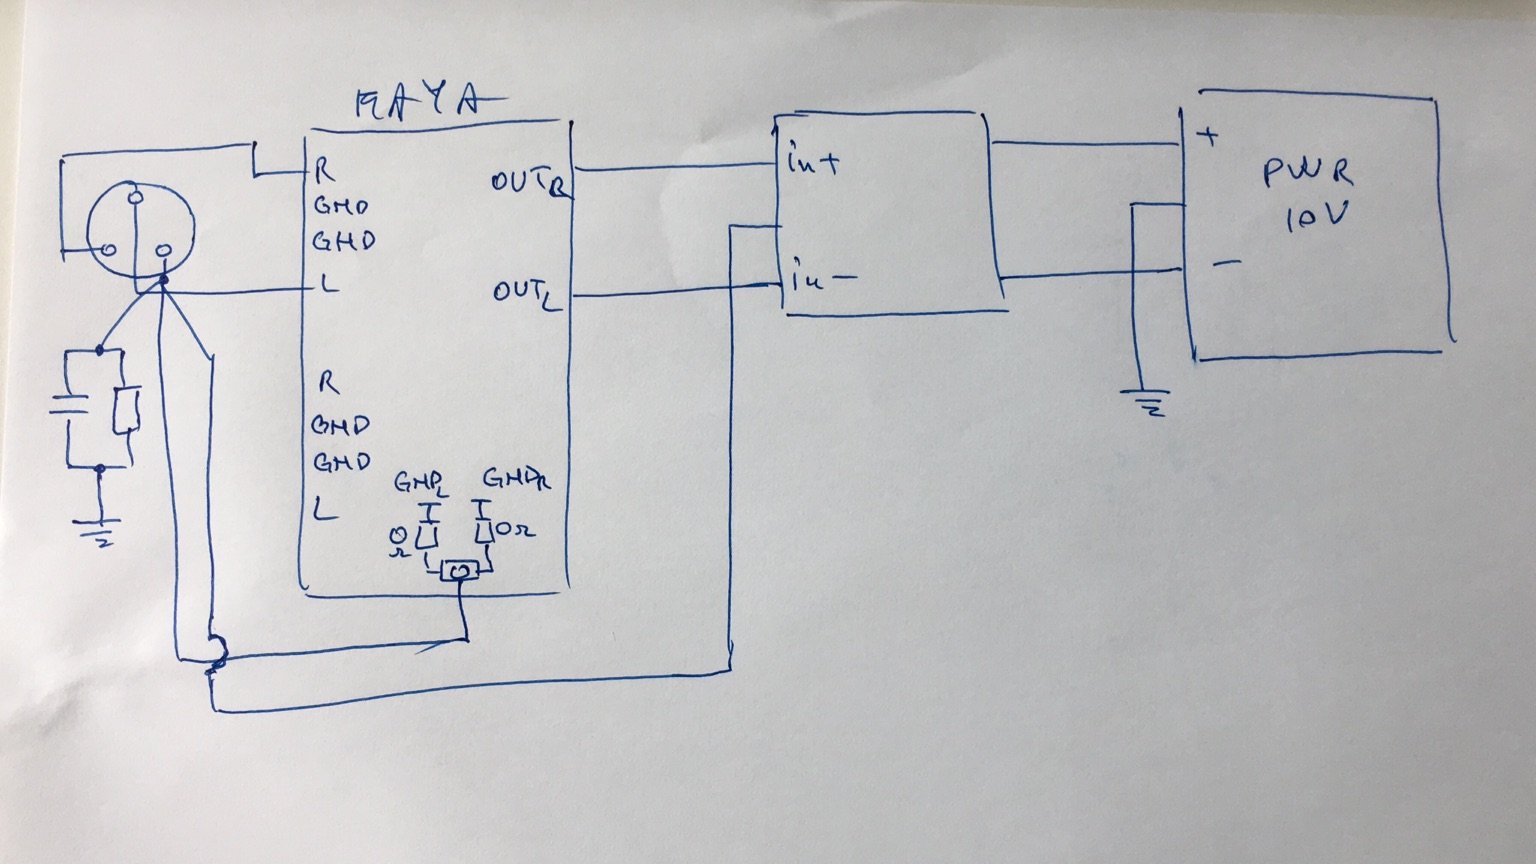 RAYA
R
GND
GND
L
OUTR
OUTL
R
GND
GND
L
GNDL
GNDR
0Ω
0Ω
in+
in−
+
PWR
10V
−